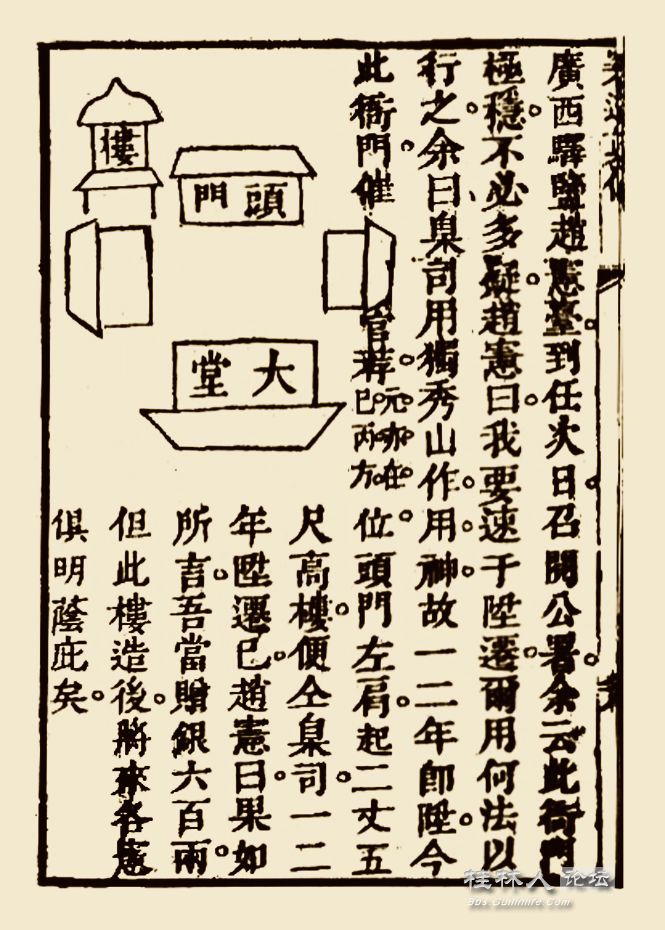 廣西驛鹽趙憲臺到任次日召開公署余云此衙門
極穩不必多礙趙憲曰我要速于陞遷爾用何法以
行之余曰臬司用獨秀山作用神故一二年即陞今
此衙門催官 元亦在巳丙方位頭門左肩起二丈五
尺高樓便仝臬司一二
年陞遷已趙憲曰果如
所言吾當贈銀六百兩
但此樓造後將來各憲
俱明蔭庇矣
樓
頭門
大堂
桂林人论坛
Bbs.Guilinlife.Com